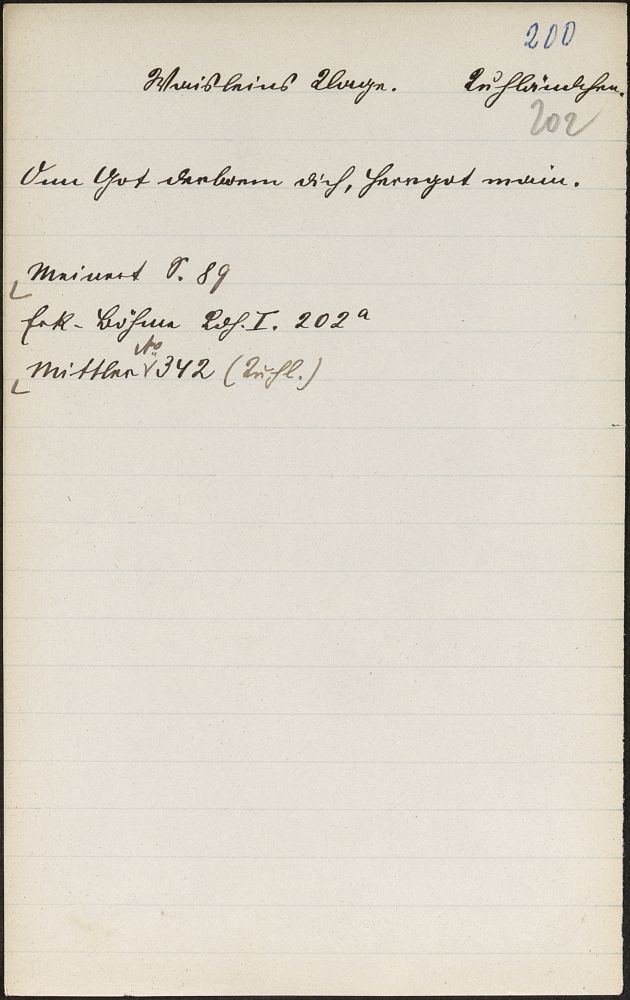 200
Waisleins Klage. Kuhländchen.
202
Onn Got derborm dich, Herrgot main.
Meinert S. 89
Erk-Böhme Ldh. I. 202ᵃ
Mittler No 342 (Kuhl.)